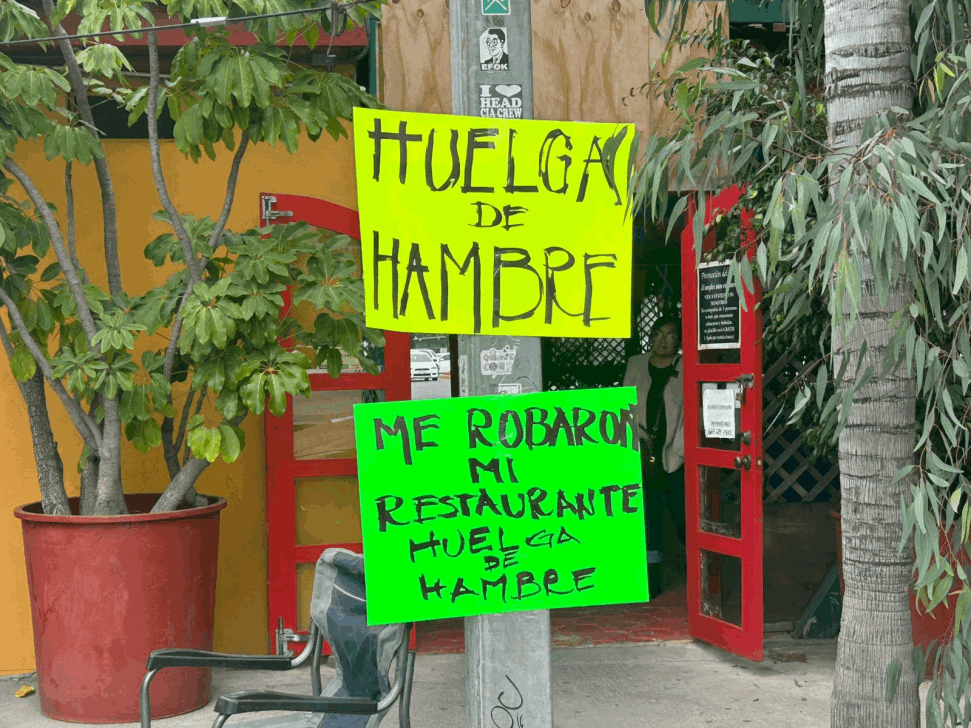 EFOK
I ❤
HEAD
CIA CREW
HUELGA
DE
HAMBRE
ME ROBARON
MI
RESTAURANTE
HUELGA
DE
HAMBRE